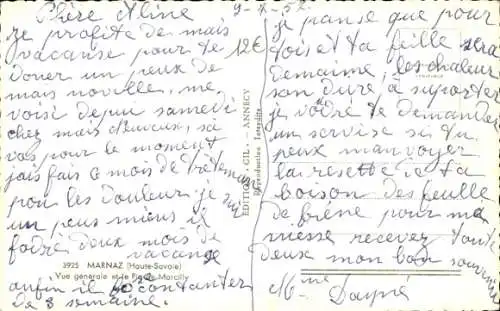 Chère Aline 9-7-58
je profite de mais
vacanse pour te
doner un peux de
mais novelle, me
voisi depui samedi
chez mais neuveux, sa
vas pour le moment
jais fais 1 mois de trètemant
pour les douleur je sui
un peus mieus il
fodré deux mois de
vacanse
enfin il
contanter
de 3 semaine.
12€
3925 MARNAZ (Haute-Savoie)
Vue générale et le Pic de Marcilly
EDITIONS GIL - ANNECY
Reproduction Interdite
je panse que pour
tois et ta feille sera
demaime, les chaleur
son dure à suporter
je vodré te demander
un servise si tu
peux m'anvoyer
la resette de ta
boison des feuille
de frêne pour ma
niesse recevez tout
deux mon bon souvenir
Mme Dayne